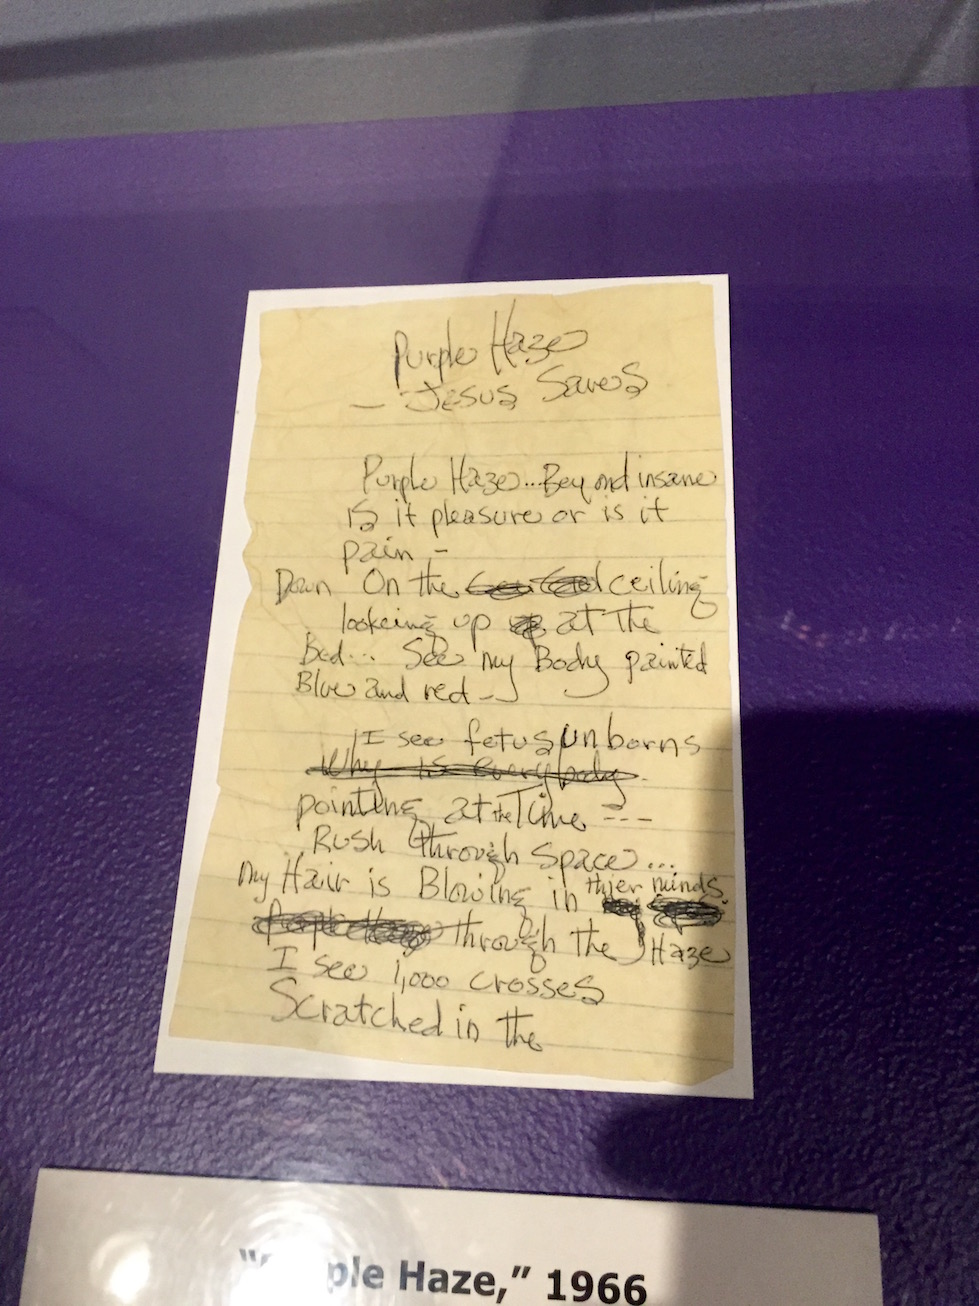 Purple Haze
- Jesus Saves
Purple Haze...Beyond insane
is it pleasure or is it
pain -
Down On the ceiling
lookeing up at the
Bed... See my Body painted
Blue and red -
I see fetus unborns
Why is everybody
pointing at the Time ---
Rush through space...
my Hair is Blowing in thier minds.
through the Haze
I see 1,000 crosses
Scratched in the
ple Haze,” 1966